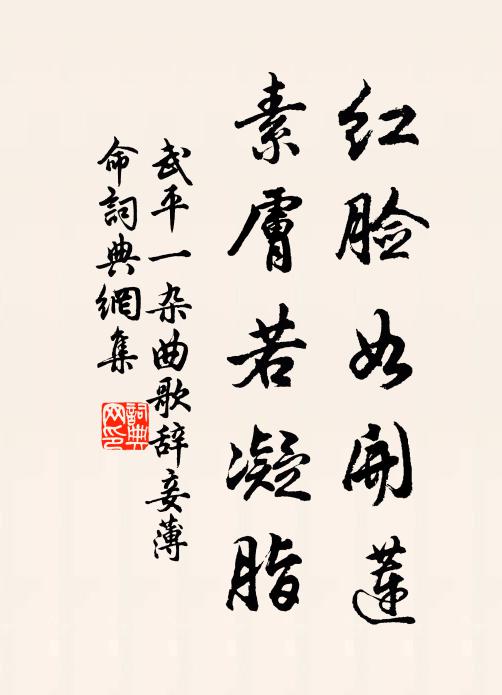 红脸如开莲
素膚若凝脂
武平一杂曲歌辞妾薄
命詞典網集
詞典
网印